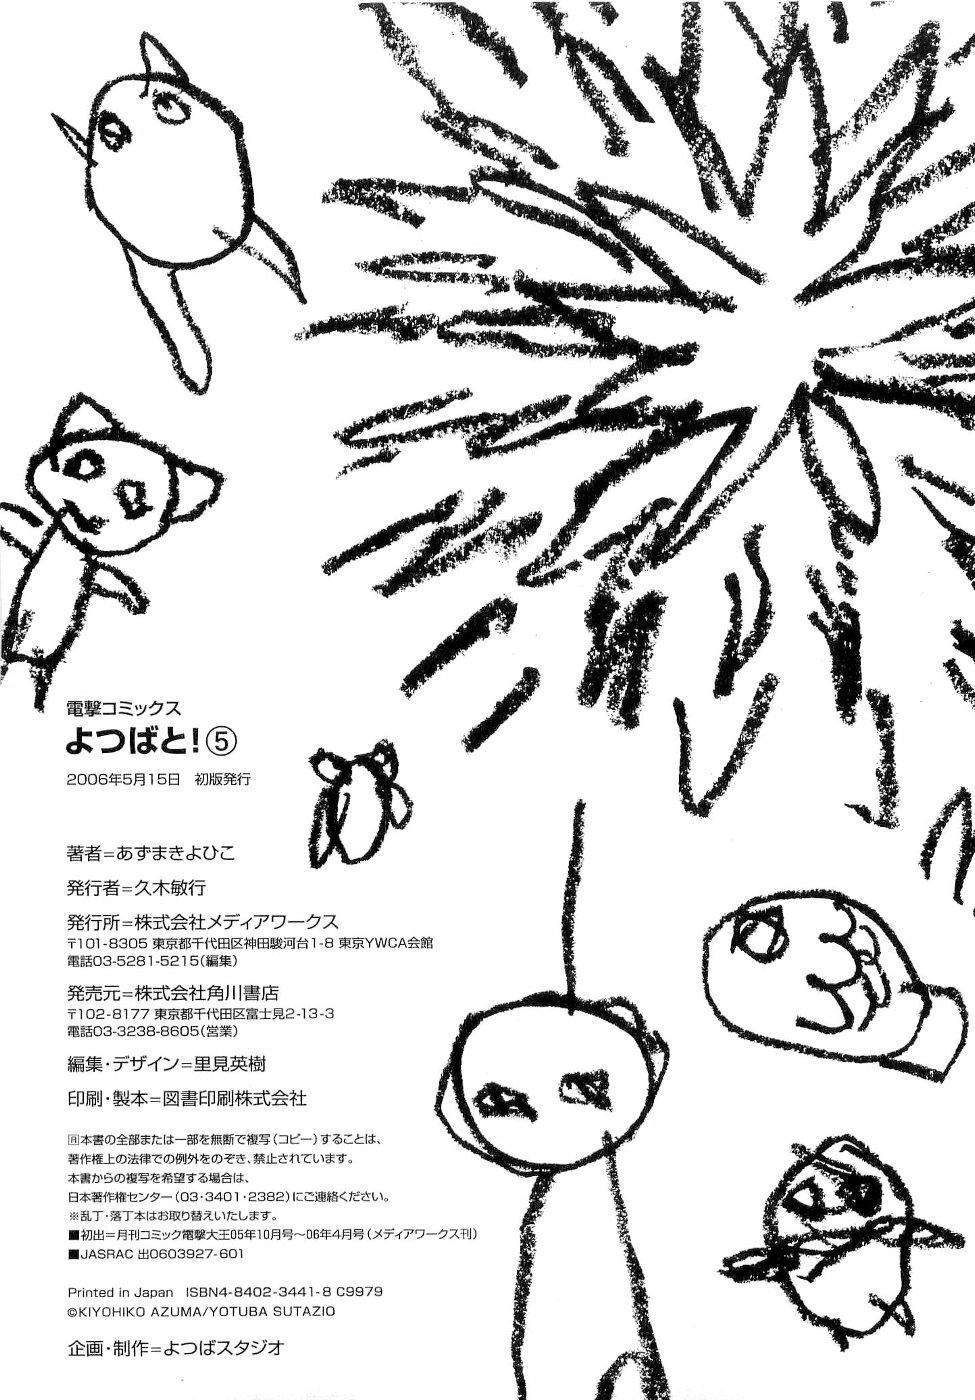 電撃コミックス
よつばと!⑤
2006年5月15日　初版発行
著者=あずまきよひこ
発行者=久木敏行
発行所=株式会社メディアワークス
〒101-8305 東京都千代田区神田駿河台1-8 東京YWCA会館
電話03-5281-5215(編集)
発売元=株式会社角川書店
〒102-8177 東京都千代田区富士見2-13-3
電話03-3238-8605(営業)
編集・デザイン=里見英樹
印刷・製本=図書印刷株式会社
Ⓡ本書の全部または一部を無断で複写(コピー)することは、
著作権上の法律での例外をのぞき、禁止されています。
本書からの複写を希望する場合は、
日本著作権センター(03・3401・2382)にご連絡ください。
※乱丁・落丁本はお取り替えいたします。
■初出=月刊コミック電撃大王05年10月号〜06年4月号(メディアワークス刊)
■JASRAC 出0603927-601
Printed in Japan　ISBN4-8402-3441-8 C9979
©KIYOHIKO AZUMA/YOTUBA SUTAZIO
企画・制作=よつばスタジオ